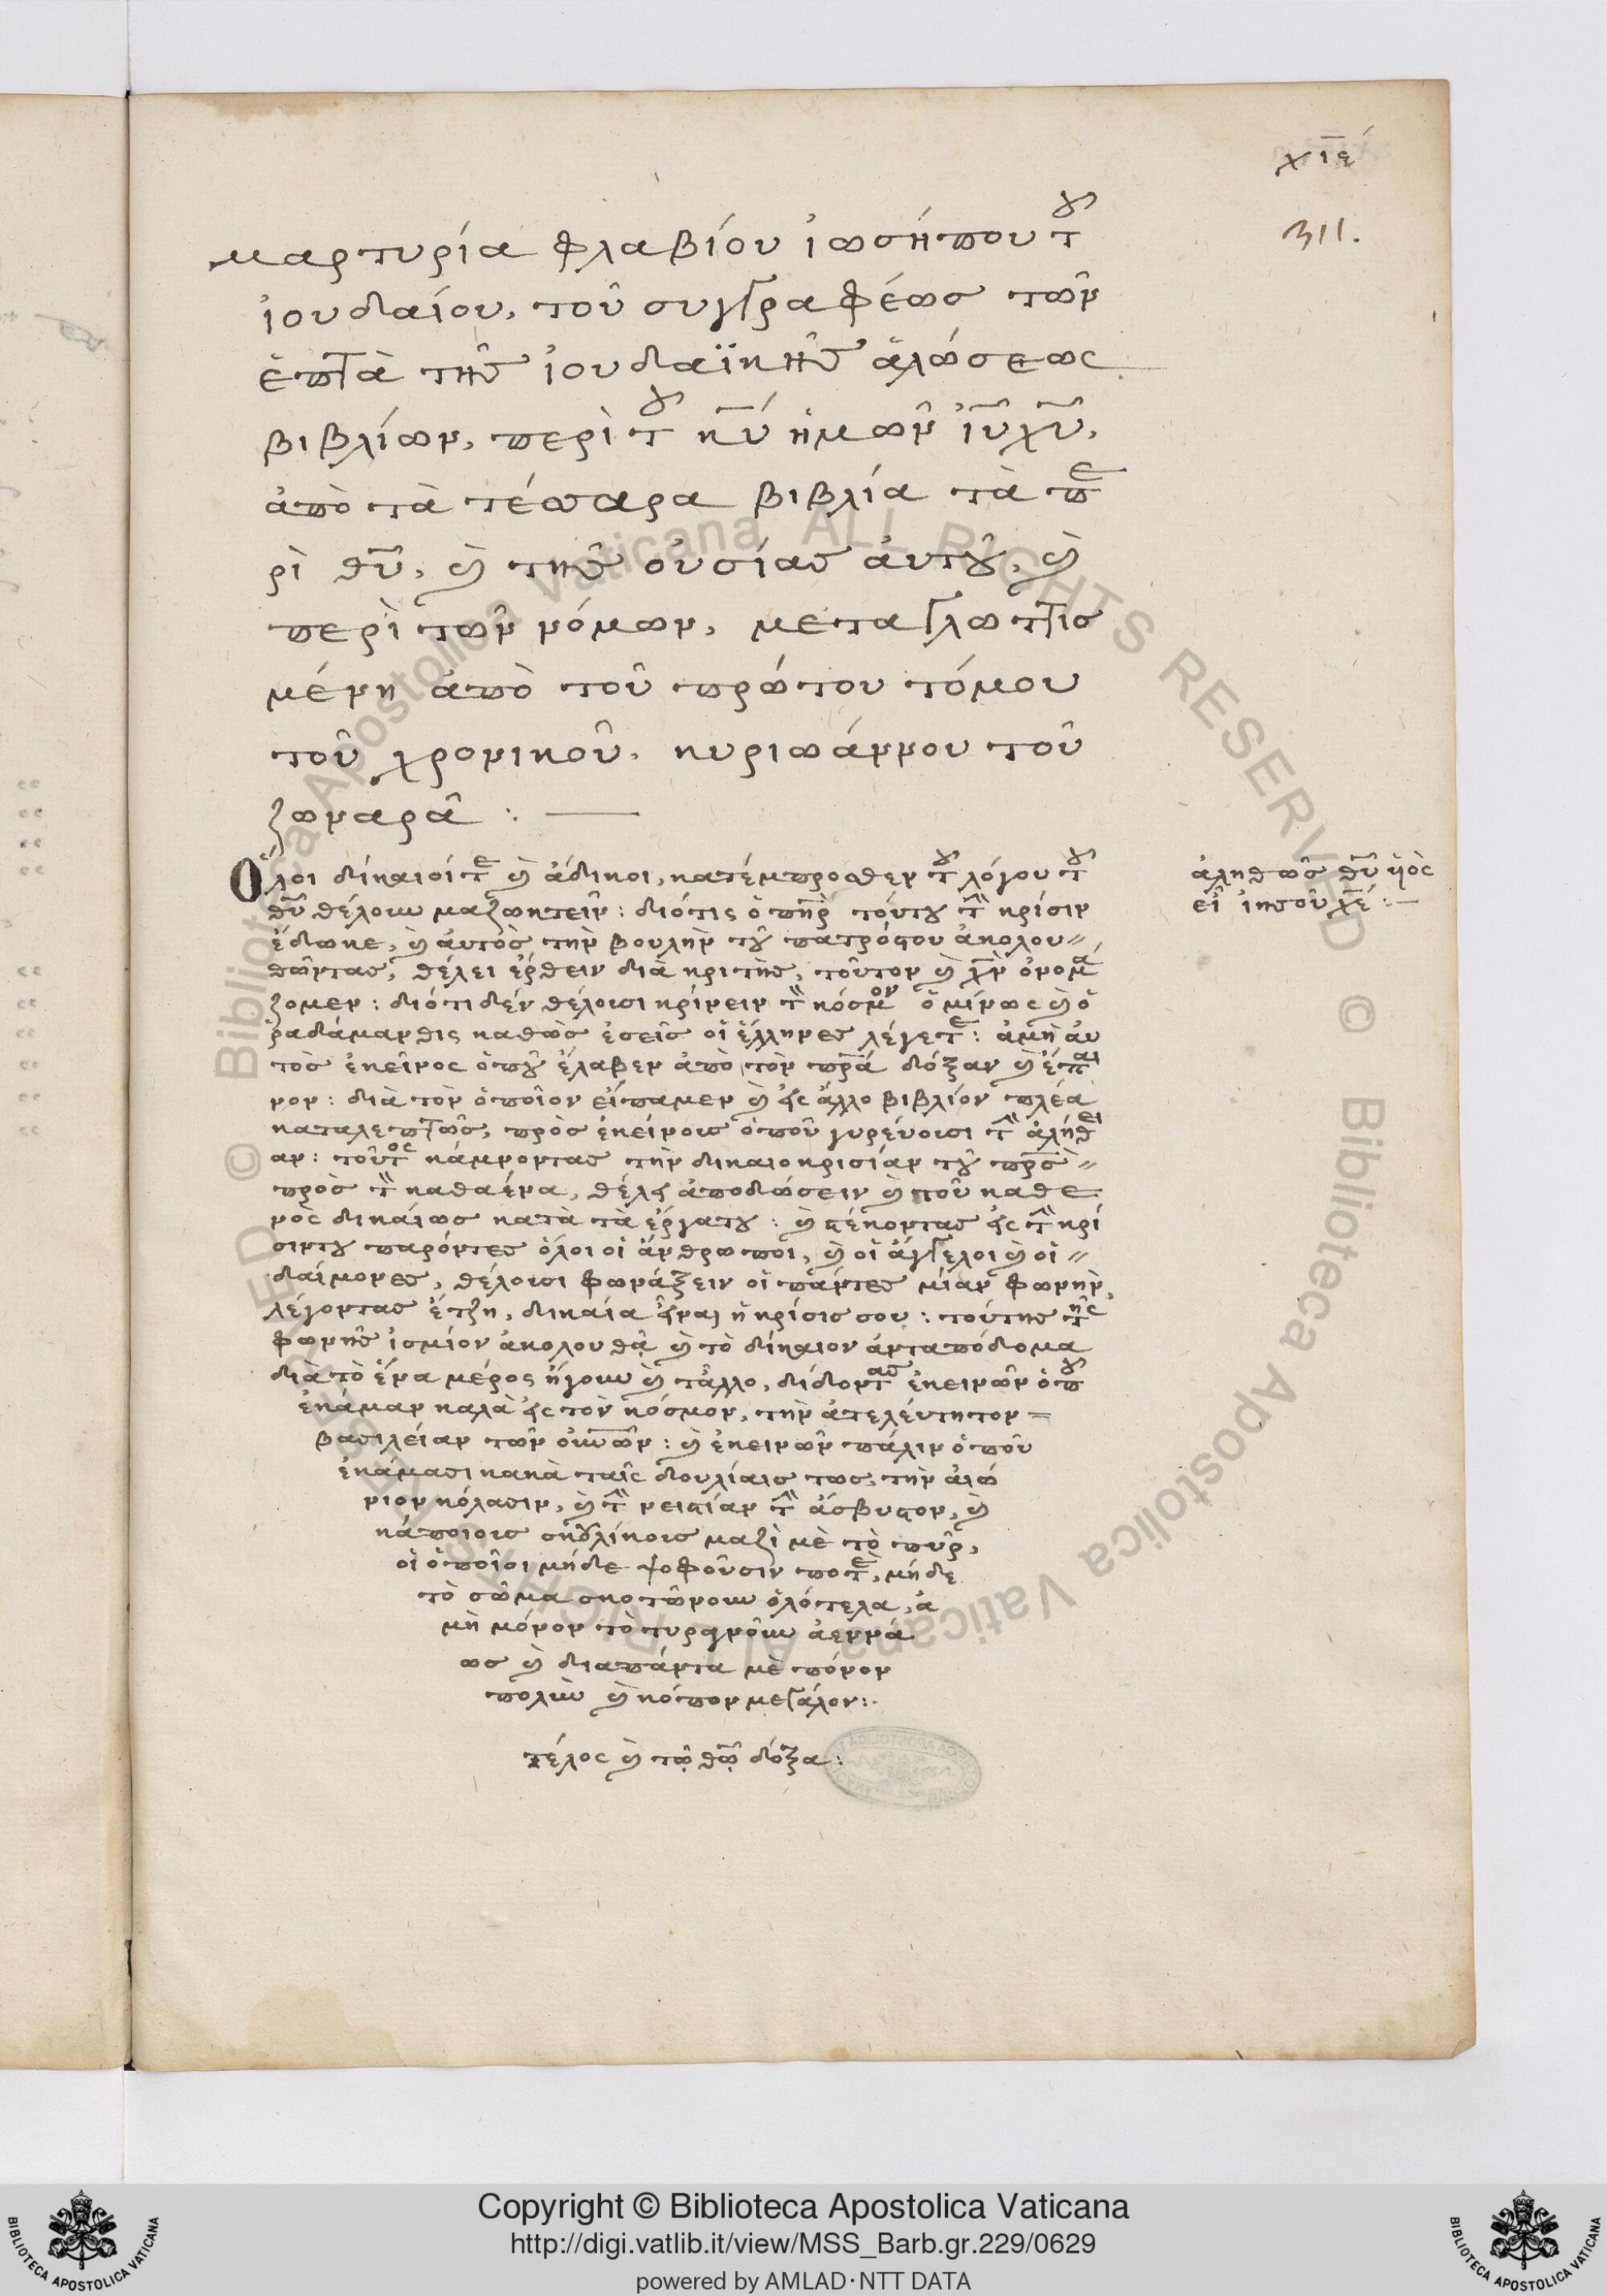 χιε´
311.
μαρτυρία φλαβίου ἰωσήπου τοῦ
ἰουδαίου, τοῦ συγγραφέως τῶν
ἑπτὰ τῆς ἰουδαϊκῆς ἁλώσεως
βιβλίων, περὶ τοῦ κ̅υ̅ ἡμῶν ἰ̅υ̅ χ̅υ̅,
ἀπὸ τὰ τέσσαρα βιβλία τὰ πε
ρὶ θ̅υ̅, καὶ τῆς οὐσίας ἀυτοῦ, καὶ
περὶ τῶν νόμων, μεταγλωττισ
μένη ἀπὸ τοῦ πρώτου τόμου
τοῦ χρονικοῦ, κυρίω άννου τοῦ
ζωναρᾶ :
Ὅλοι δίκαιοί τε καὶ ἀδικοι, κατέμπροσθεν τοῦ λόγου τοῦ
θ̅υ̅ θέλουν μαζωκτεῖν : διότις ὁ π̅η̅ρ̅ τούτου τὴν κρίσιν
ἔδωκε, καὶ ἀυτὸς τὴν βουλὴν τοῦ πατρόςου ἀκολου
θῶντας, θέλει ἐρθειν διὰ κριτὴς, τοῦτον καὶ χ̅ν̅ ὀνομά
ζομεν : διότι δὲν θέλουσι κρίνειν τὸν κόσμον ὁ μίνως καὶ ὁ
ῥαδάμανθις καθὼς ἐσεῖς οἱ ἕλληνες λέγετε : ἀμὴ ἀυ
τὸς ἐκεῖνος ὁποῦ ἔλαβεν ἀπὸ τὸν π̅ρ̅α̅ δόξαν καὶ ἔπαι
νον : διὰ τὸν ὁποῖον εἴπαμεν καὶ εἰς ἄλλο βιβλίον πλέα
καταλεπτῶς, πρὸς ἐκείνους ὁποῦ γυρεύουσι τὴν ἀλήθει
αν : τοῦτος κάμνοντας τὴν δικαιοκρισίαν τοῦ π̅ρ̅ς̅
πρὸς τὸν καθαένα, θέλει ἀποδώσειν καὶ ποῦ καθε
νὸς δικάιως κατὰ τὰ ἔργατου : καὶ στέκοντας εἰς τὴν κρί
σιντου παρόντες ὅλοι οἱ ἄνθρωποι, καὶ οἱ ἄγγελοι καὶ οἱ
δαίμονες, θέλουσι φωνάξειν οἱ πάντες μίαν φωνὴν,
λέγοντας ἔτζη, δικαία εἶναι ἡ κρίσις σου : τούτης τῆς
φωνῆς ἰσμίον ἀκολουθᾷ καὶ τὸ δίκαιον ἀνταπόδομα
διὰ τὸ ἕνα μέρος ἤγουν καὶ τἄλλο, δίδοντας ἐκεινῶν ὁποῦ
ἐκάμαν καλὰ εἰς τὸν κόσμον, τὴν ἀτελέυτητον
βασιλείαν τῶν ο̅υ̅ν̅ῶν : καὶ ἐκεινῶν πάλιν ὁποῦ
ἐκάμασι κακὰ ταῖς δουλίαις τως, τὴν ἀιώ
νιον κόλασιν, καὶ τὴν νειστίαν τὴν ἀσβυστον, καὶ
κάποιους σκουλίκους μαζὶ μὲ τὸ πῦρ,
οἱ ὁποῖοι μήδε ψοφοῦσιν ποτὲ, μήδε
τὸ σῶμα σκοτώνουν ὁλότελα, ἀ
μὴ μόνον τὸ τυραννοῦν ἀεννά
ως καὶ διαπάντα μὲ πόνον
πολὺν καὶ κόπον μεγάλον :.
τέλος καὶ τῷ θ̅ῷ̅ δόξα :
ἀληθῶς θ̅υ̅ υἱὸς
εἶ ἰησοῦ χ̅ε̅ :
Copyright © Biblioteca Apostolica Vaticana
http://digi.vatlib.it/view/MSS_Barb.gr.229/0629
powered by AMLAD·NTT DATA
BIBLIOTECA APOSTOLICA VATICANA
BIBLIOTECA APOSTOLICA VATICANA
© Biblioteca Apostolica Vaticana ALL RIGHTS RESERVED © Biblioteca Apostolica Vaticana ALL RIGHTS RESERVED